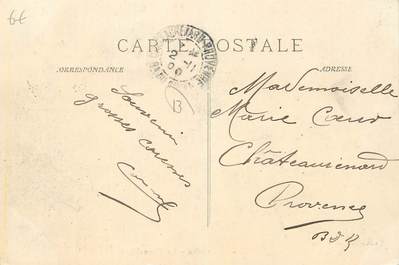 6€
CARTE POSTALE
CORRESPONDANCE
ADRESSE
Souvenir
grosses
B
Mademoiselle
Marie Cœur
Châteaurenard
Provence
B d R